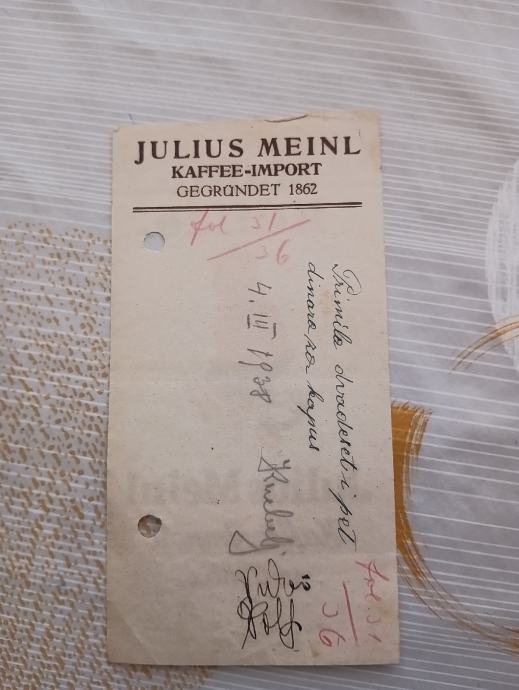 JULIUS MEINL
KAFFEE-IMPORT
GEGRÜNDET 1862
fol 31
36
Primila dvadeset i pet
dinara za kapus
4. III 1938
fol 31
36